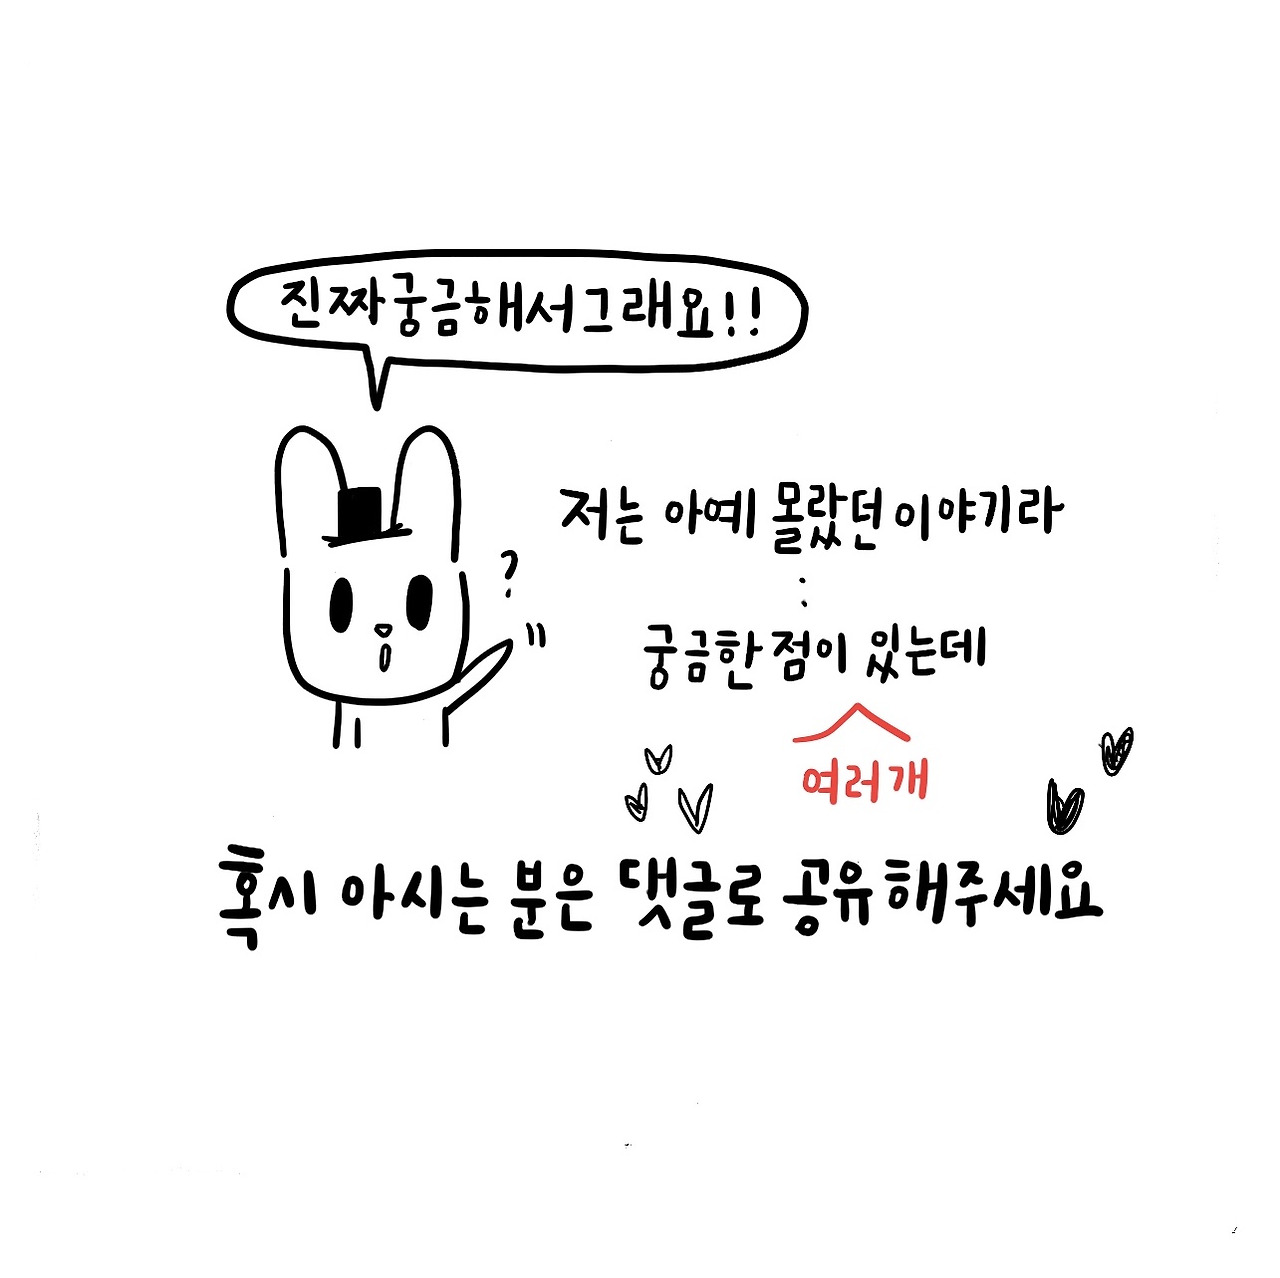 진짜 궁금해서 그래요!!
?
저는 아예 몰랐던 이야기라
:
궁금한 점이 있는데
여러개
혹시 아시는 분은 댓글로 공유해주세요